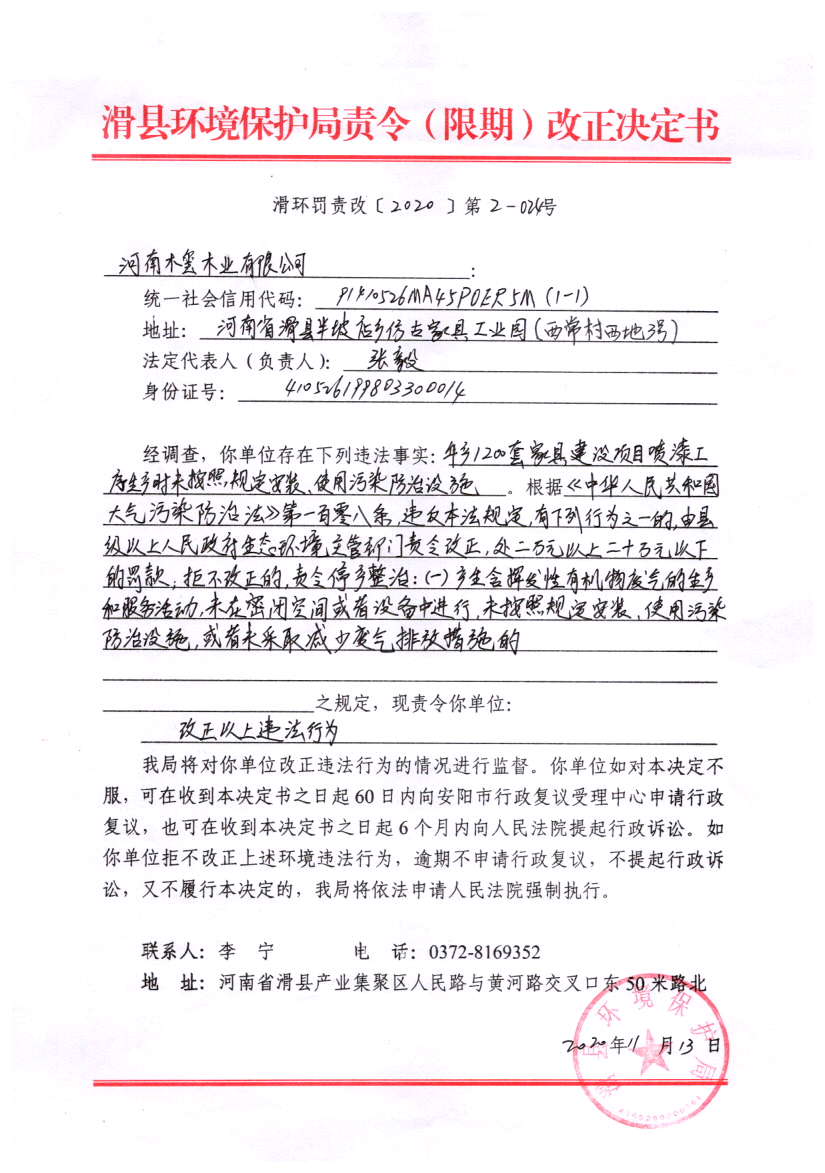 滑县环境保护局责令（限期）改正决定书
滑环罚责改〔2020〕第2-024号
河南木玺木业有限公司：
统一社会信用代码：91410526MA45P0ER5M（1-1）
地址：河南省滑县半坡店乡仿古家具工业园（西常村西地3号）
法定代表人（负责人）：张毅
身份证号：410526199803300014
经调查，你单位存在下列违法事实：年产1200套家具建设项目喷漆工
序生产时未按照规定安装、使用污染防治设施。根据《中华人民共和国
大气污染防治法》第一百零八条，违反本法规定，有下列行为之一的，由县
级以上人民政府生态环境主管部门责令改正，处二万元以上二十万元以下
的罚款；拒不改正的，责令停产整治：（一）产生含挥发性有机物废气的生产
和服务活动，未在密闭空间或者设备中进行，未按照规定安装、使用污染
防治设施，或者未采取减少废气排放措施的
之规定，现责令你单位：
改正以上违法行为
我局将对你单位改正违法行为的情况进行监督。你单位如对本决定不
服，可在收到本决定书之日起60日内向安阳市行政复议受理中心申请行政
复议，也可在收到本决定书之日起6个月内向人民法院提起行政诉讼。如
你单位拒不改正上述环境违法行为，逾期不申请行政复议，不提起行政诉
讼，又不履行本决定的，我局将依法申请人民法院强制执行。
联系人：李 宁 电 话：0372-8169352
地 址：河南省滑县产业集聚区人民路与黄河路交叉口东50米路北
滑县环境保护局
2020年11月13日